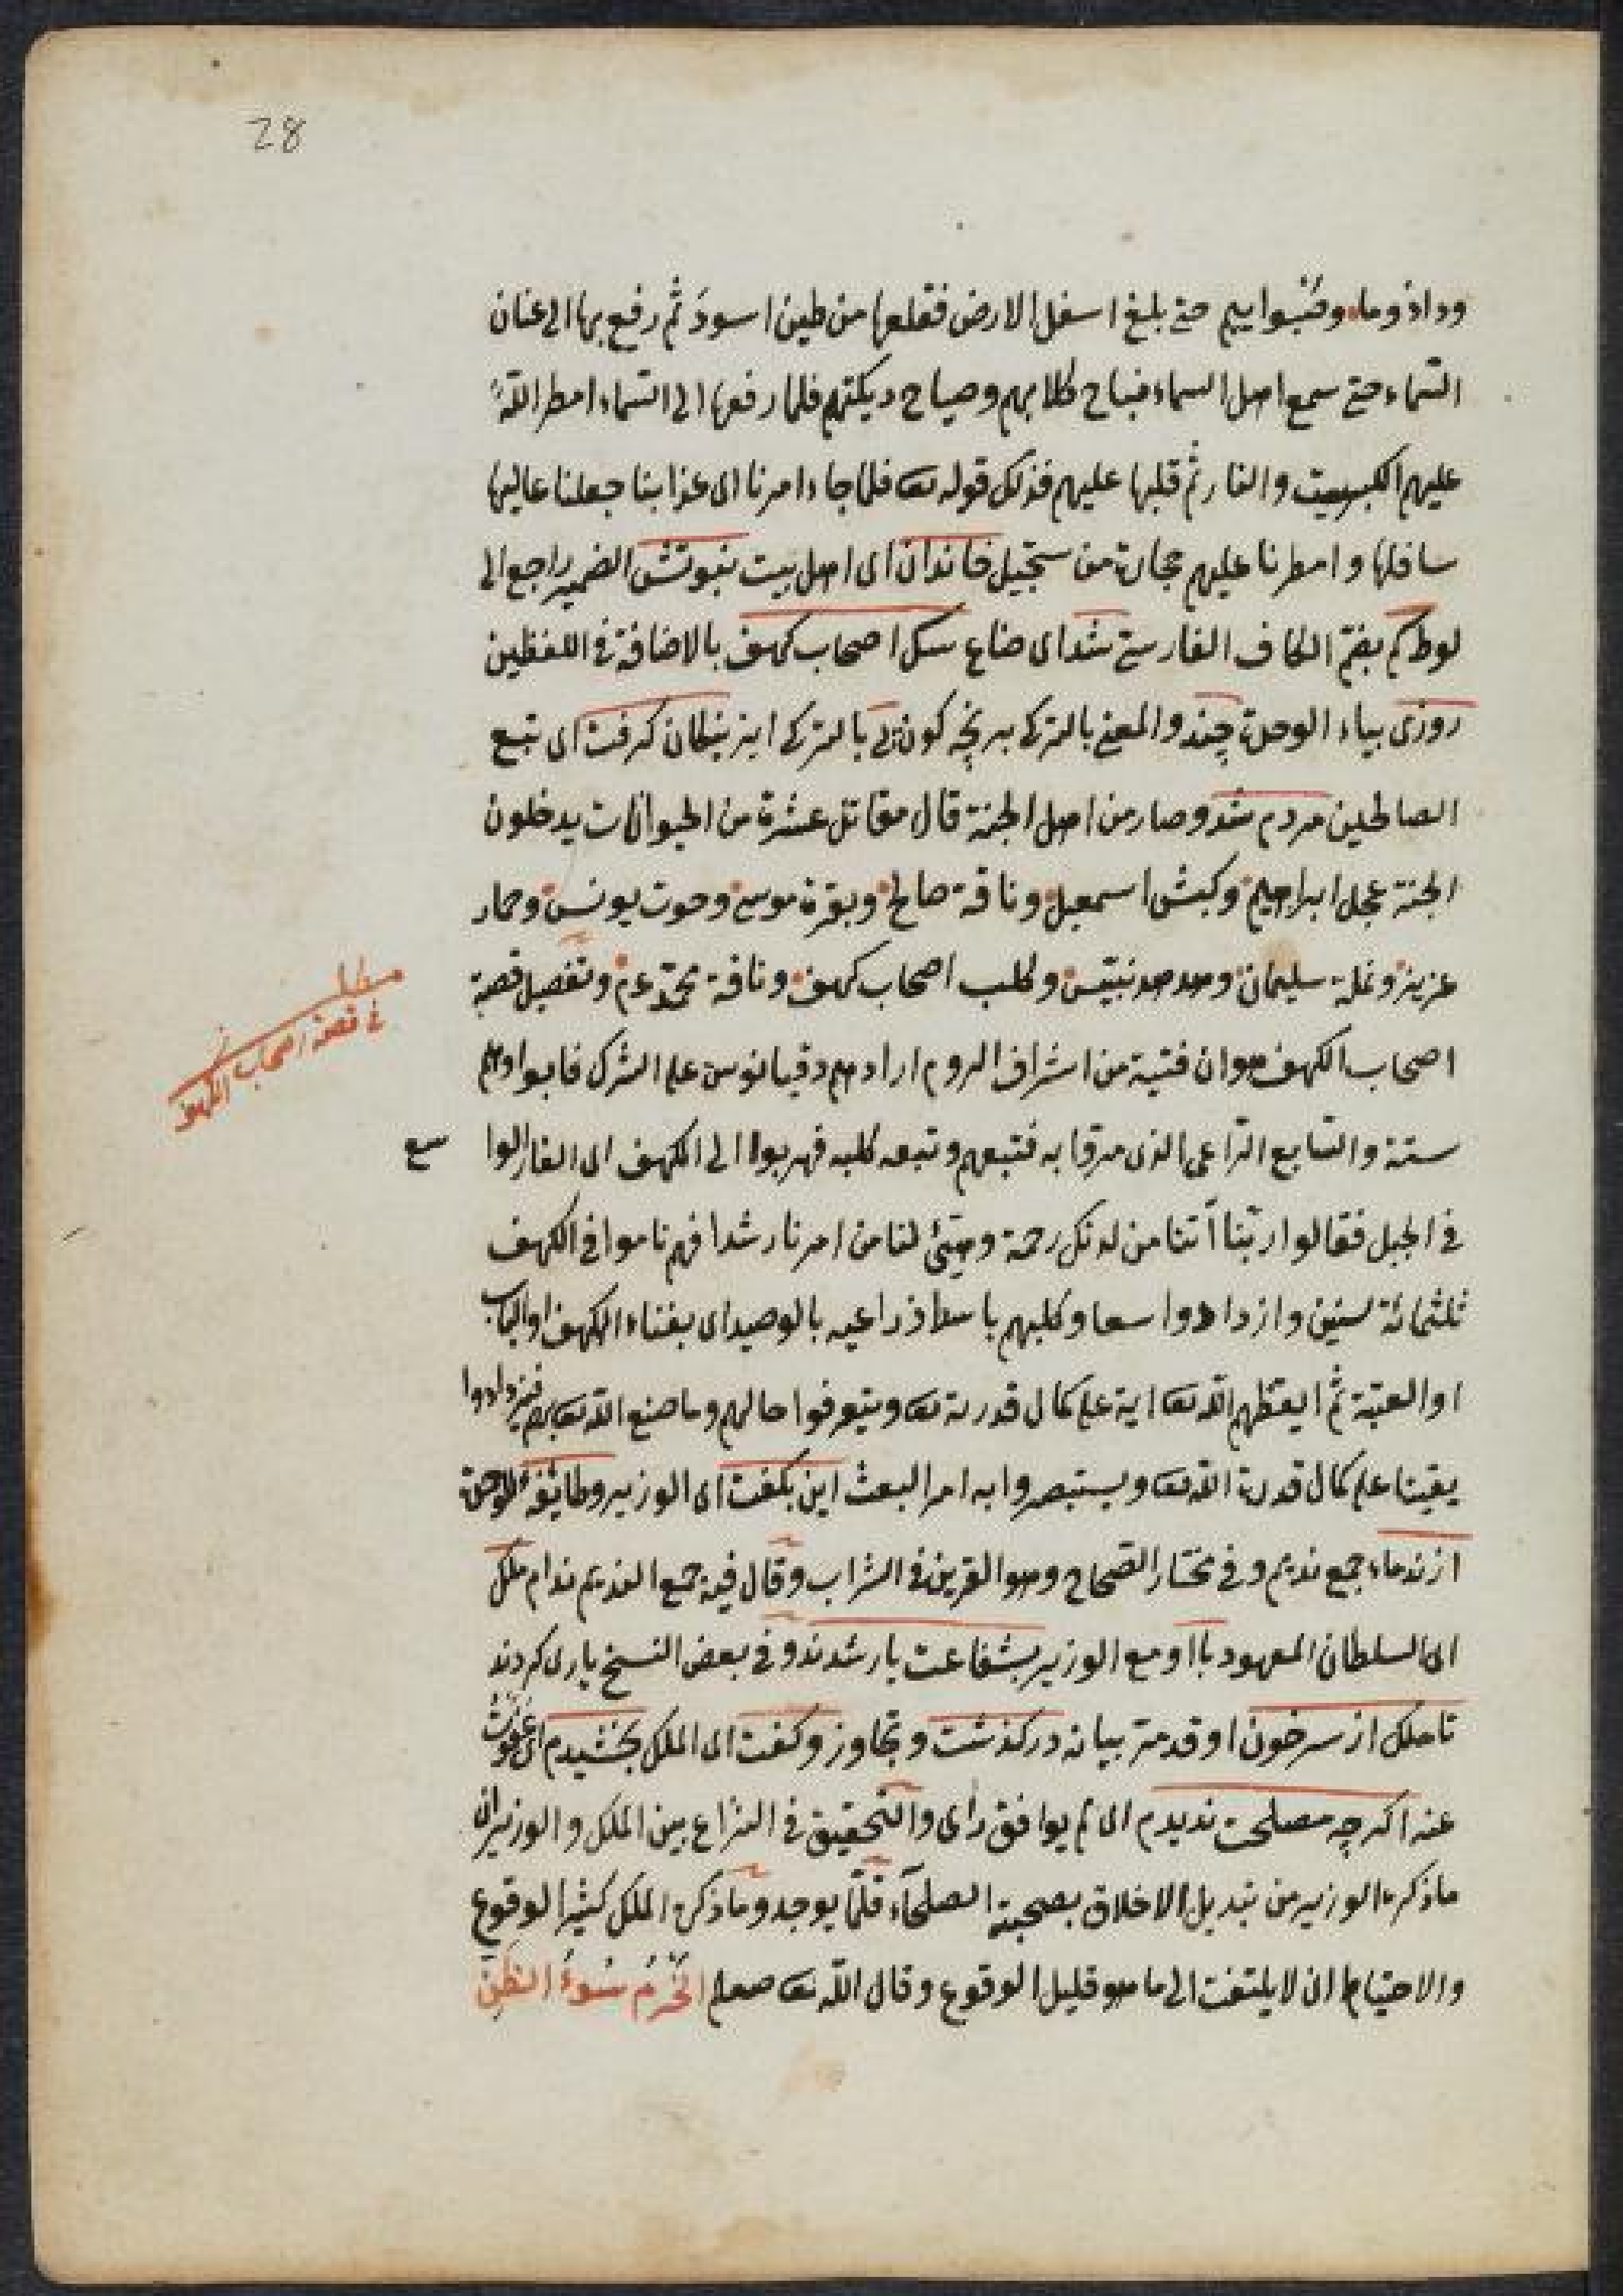 28
وداذوما وصبواييم حتى بلغ اسفل الارض فقلعها من طين اسود ثم رفع بها الى عنان
السماء حتى سمع اهل السماء نباح كلابهم وصياح ديكتهم فلما رفعها الى السماء امطر الله
عليهم الكبريت والنار ثم قلبها عليهم فذلك قوله تعه فلما جاء امرنا اى عذابنا جعلنا عاليها
سافلها وامطرنا عليهم حجارة من سجيل خاندان اى اهل بيت نبوتش الضمير راجع الى
لوط كم بضم الكاف الفارسية شد اى ضاع سك اصحاب كهف بالاضافة فى اللفظين
روزى بياء الوحدة چند والمعنى بالتركى بر نچه كون پى بالتركى ايز نيكان كرفت اى تبع
الصالحين مردم شد وصار من اهل الجنة قال مقاتل عشرة من الحيوانات يدخلون
الجنة عجل ابراهيم وكبش اسمعيل وناقة صالح وبقرة موسى وحوت يونس وحمار
عزيز ونملة سليمان وهدهد بلقيس وكلب اصحاب كهف وناقة محمد عم وتفصيل قصة
مطلب
فى قصة اصحاب الكهف
اصحاب الكهف هو ان فتية من اشراف الروم اراد هم دقيانوس على الشرك فابوا وهم
ستة والسابع الراعى الذى مروا به فتبعهم وتبعه كلبه فهربوا الى الكهف اى الغار الواسع
فى الجبل فقالوا ربنا آتنا من لدنك رحمة وهيئ لنا من امرنا رشدا فهم ناموا فى الكهف
ثلثمائة سنين وازدادوا تسعا وكلبهم باسط ذراعيه بالوصيد اى بفناء الكهف او الباب
او العتبة ثم ايقظهم الله تعه اية على كمال قدرته تعه ويتعرفوا حالهم وما صنع الله تعه بهم فيزدادوا
يقينا على كمال قدرة الله تعه ويستبصروا به امر البعث اين بكفت اى الوزير وطايفۀ للوحدة
از ندماء جمع نديم وفى مختار الصحاح وهو القرين فى الشراب وقال فيه جمع النديم ندام ملك
اى السلطان المعهود با او مع الوزير بشفاعت يار شدند وفى بعض النسخ يارى كردند
تا ملك از سر خون او قد مر بيانه در كذشت وتجاوز وكفت اى الملك بخشيدم اى عفوت
عنه اكر چه مصلحت نديدم اى لم يوافق راى والتحقيق فى النزاع بين الملك والوزير ان
ما ذكره الوزير من تبديل الاخلاق بصحبة الصلحاء قلما يوجد وما ذكره الملك كثير الوقوع
والاحتياط ان لا يلتفت الى ما هو قليل الوقوع وقال الله تعه صعلم الحزم سوء الظن